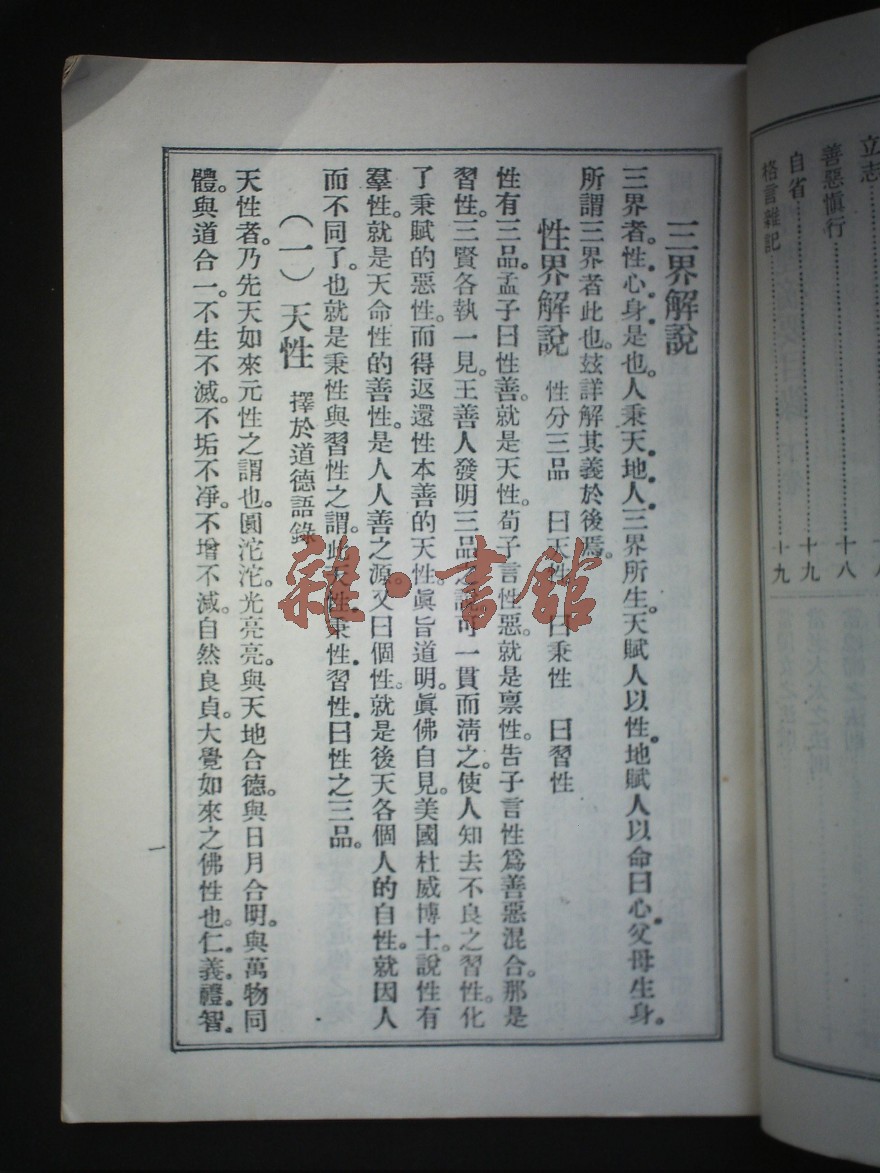 立志
善惡愼行 十八
自省 十九
格言雜記 十九
三界解說
三界者。性心身是也。人秉天地人三界所生。天賦人以性。地賦人以命曰心。父母生身。
所謂三界者此也。玆詳解其義於後焉。
性界解說 性分三品 曰天性 曰秉性 曰習性
性有三品。孟子曰性善。就是天性。荀子言性惡。就是禀性。告子言性爲善惡混合。那是
習性。三賢各執一見。王善人發明三品之說。可一貫而淸之。使人知去不良之習性。化
了秉賦的惡性。而得返還性本善的天性。眞旨道明。眞佛自見。美國杜威博士。說性有
羣性。就是天命性的善性。是人人善之源。又曰個性。就是後天各個人的自性。就因人
而不同了。也就是秉性與習性之謂。此天性。秉性。習性。曰性之三品。
（一）天性 擇於道德語錄
天性者。乃先天如來元性之謂也。圓沱沱。光亮亮。與天地合德。與日月合明。與萬物同
體。與道合一。不生不滅。不垢不凈。不增不減。自然良貞。大覺如來之佛性也。仁。義。禮。智。
一
雜·書館